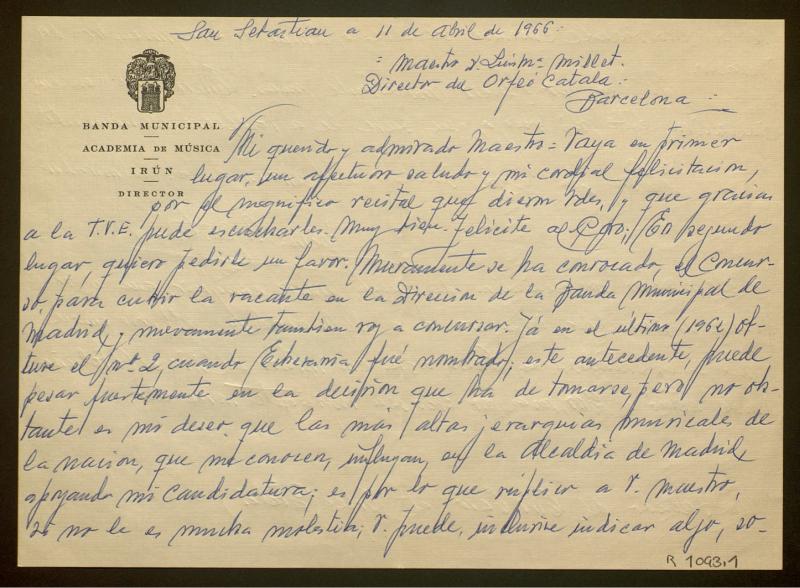 San Sebastian a 11 de Abril de 1966.
Maestro D. Luis Mª Millet.
Director del Orfeó Catalá.
Barcelona
BANDA MUNICIPAL
ACADEMIA DE MÚSICA
IRÚN
DIRECTOR
Mi querido y admirado Maestro = Vaya en primer
lugar, un afectuoso saludo y mi cordial felicitacion,
por el magnifico recital que dieron Vdes, y que gracias
a la T.V.E. pude escucharles. Muy bien. Felicite al Coro; En segundo
lugar, quiero pedirle un favor. Nuevamente se ha convocado, el Concur-
so, para cubrir la vacante en la Direccion de la Banda Municipal de
Madrid, y nuevamente tambien voy a concursar. Yá en el último (1964) ob-
tuve el nº 2, cuando Echevarria fué nombrado; este antecedente, puede
pesar fuertemente en la decision que ha de tomarse, pero no obs-
tante es mi deseo, que las más altas jerarquias musicales de
la nacion, que me conocen, influyan, en la Alcaldia de Madrid,
apoyando mi candidatura; es por lo que suplico a V. Maestro,
si no le es mucha molestia, V. puede, inclusive indicar algo, so-
R 1093,1